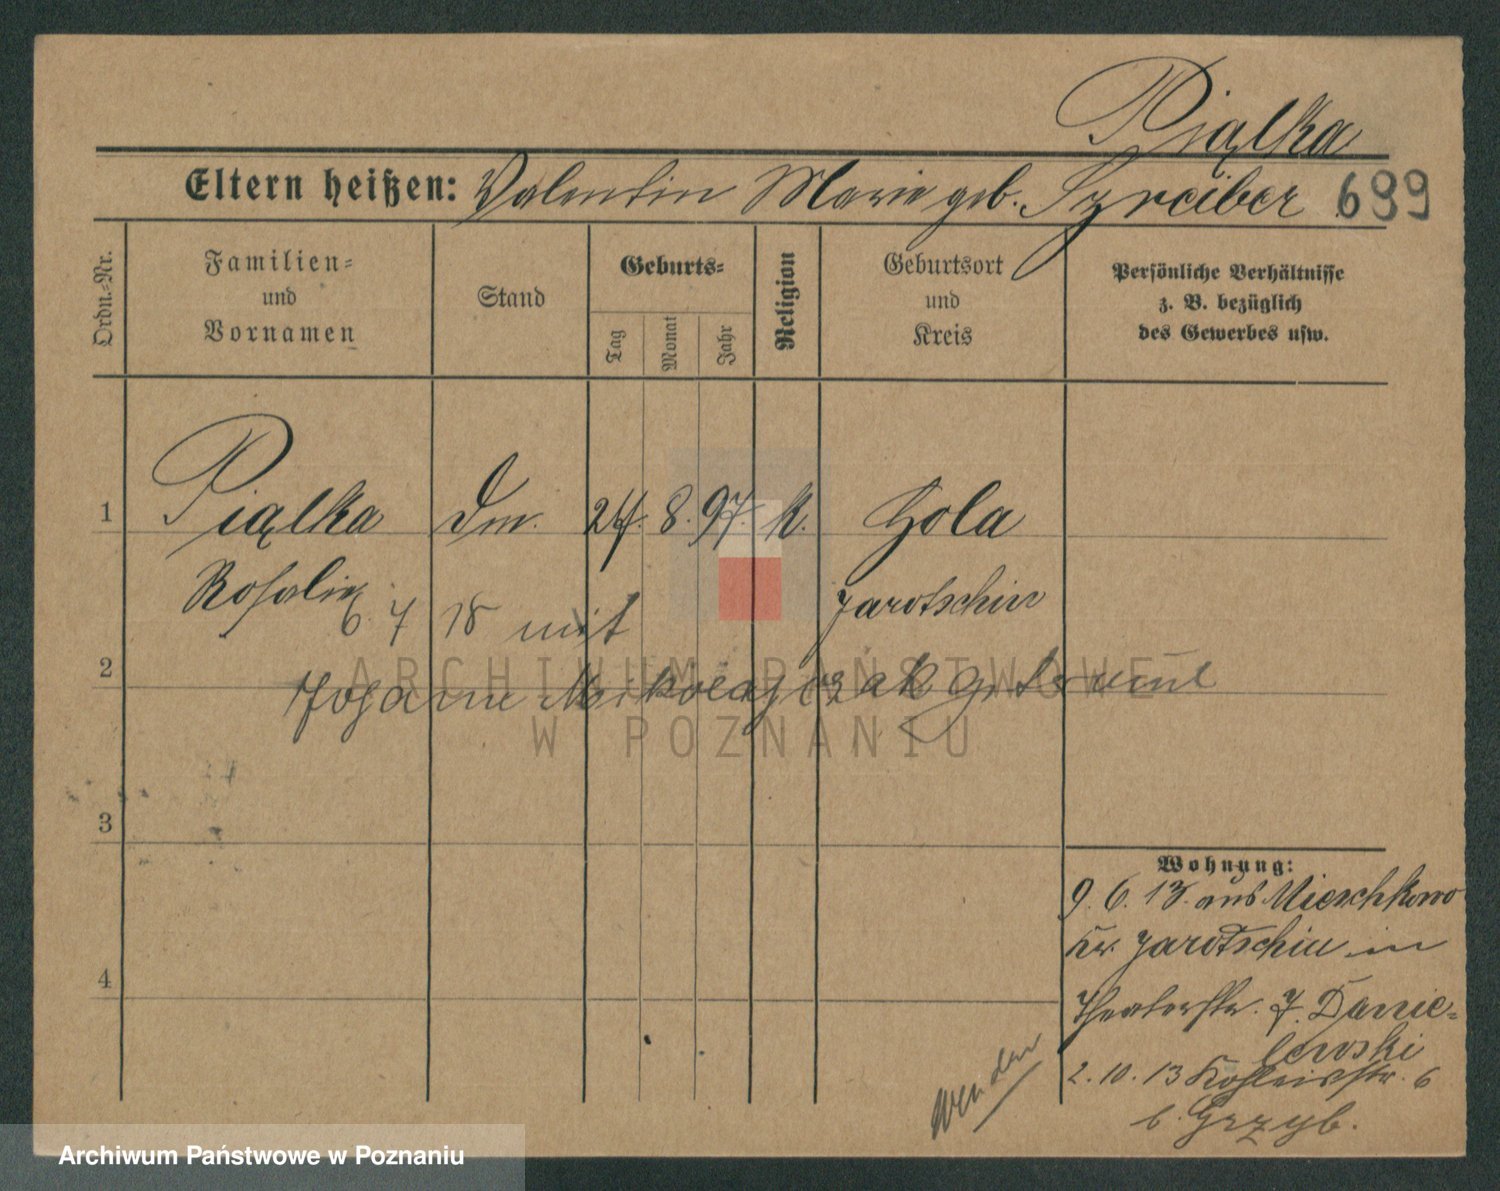 Piąlka
Eltern heißen: Valentin Marie geb. Szreiber 699
Ordn.-Nr.
Familien-
und
Vornamen
Stand
Geburts-
Tag
Monat
Jahr
Religion
Geburtsort
und
Kreis
Persönliche Verhältnisse
z. B. bezüglich
des Gewerbes usw.
1 Piąlka Dm. 24. 8. 97. k. Gola
Rosalie Jarotschin
6. 7 18 mit
2
Johann Mikołajczak getraut
3
4
Wohnung:
9. 6. 13. aus Mieschkowo
Kr. Jarotschin in
Theaterstr. 7. Danie-
lewski
2. 10. 13 Kohleisstr. 6
b. Grzyb.
wenden
ARCHIWUM PAŃSTWOWE
W POZNANIU
Archiwum Państwowe w Poznaniu